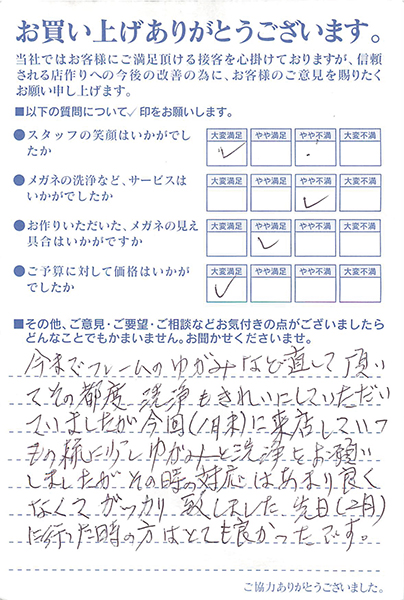 お買い上げありがとうございます。
当社ではお客様にご満足頂ける接客を心掛けておりますが、信頼
される店作りへの今後の改善の為に、お客様のご意見を賜りたく
お願い申し上げます。
■以下の質問について✓印をお願いします。
●スタッフの笑顔はいかがでし
たか
大変満足 やや満足 やや不満 大変不満
●メガネの洗浄など、サービスは
いかがでしたか
大変満足 やや満足 やや不満 大変不満
●お作りいただいた、メガネの見え
具合はいかがですか
大変満足 やや満足 やや不満 大変不満
●ご予算に対して価格はいかが
でしたか
大変満足 やや満足 やや不満 大変不満
■その他、ご意見・ご要望・ご相談などお気付きの点がございましたら
どんなことでもかまいません。お聞かせくださいませ。
今までフレームのゆがみなど直して頂い
てその都度 洗浄もきれいにしていただい
ていましたが今回(1月末)に来店していつ
もの様に少しゆがみと洗浄をお願い
しましたがその時の対応はあまり良く
なくてガッカリ致しました。先日(2月)
に行った時の方はとても良かったです。
ご協力ありがとうございました。